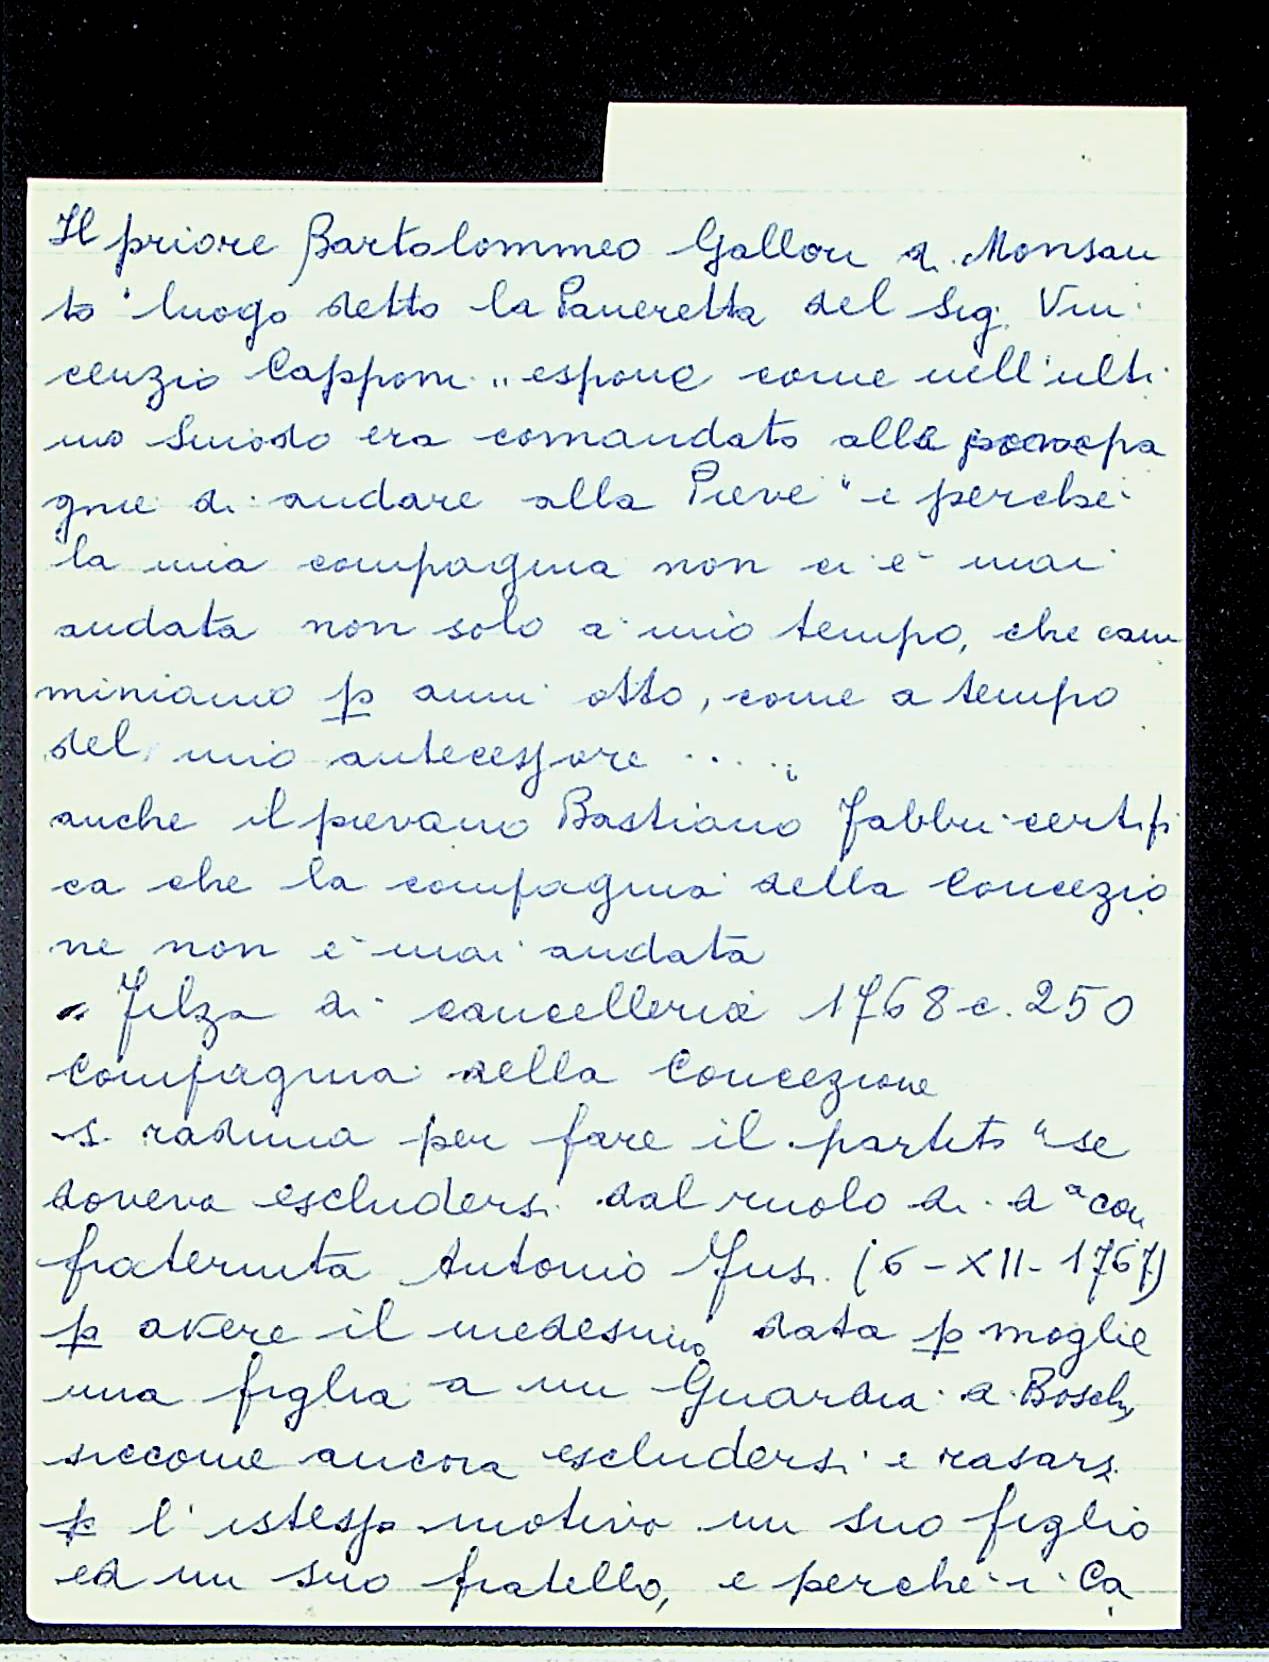 Il priore Bartolommeo Gallori di Monsan
to "luogo detto la Paneretta del Sig. Vin
cenzio Capponi „ espone come nell'ulti
mo Sinodo era comandato alle compa
gnie di andare alla Pieve "e perchè
la mia compagnia non ci è mai
andata non solo a mio tempo, che cam
miniamo p anni otto, come a tempo
del mio antecessore .....;
anche il pievano Bastiano Fabbri certifi
ca che la compagnia della Concezio
ne non è mai andata
Filza di cancelleria 1768 c. 250
Compagnia della Concezione
si raduna per fare il partito "se
doveva escludersi dal ruolo di dª con
fraternita Antonio Fusi (6-XII-1767)
p avere il medesimo data p moglie
una figlia a un Guardia di Boschi
siccome ancora escludersi e rasarsi
p l'istesso motivo un suo figlio
ed un suo fratello, e perchè i Ca